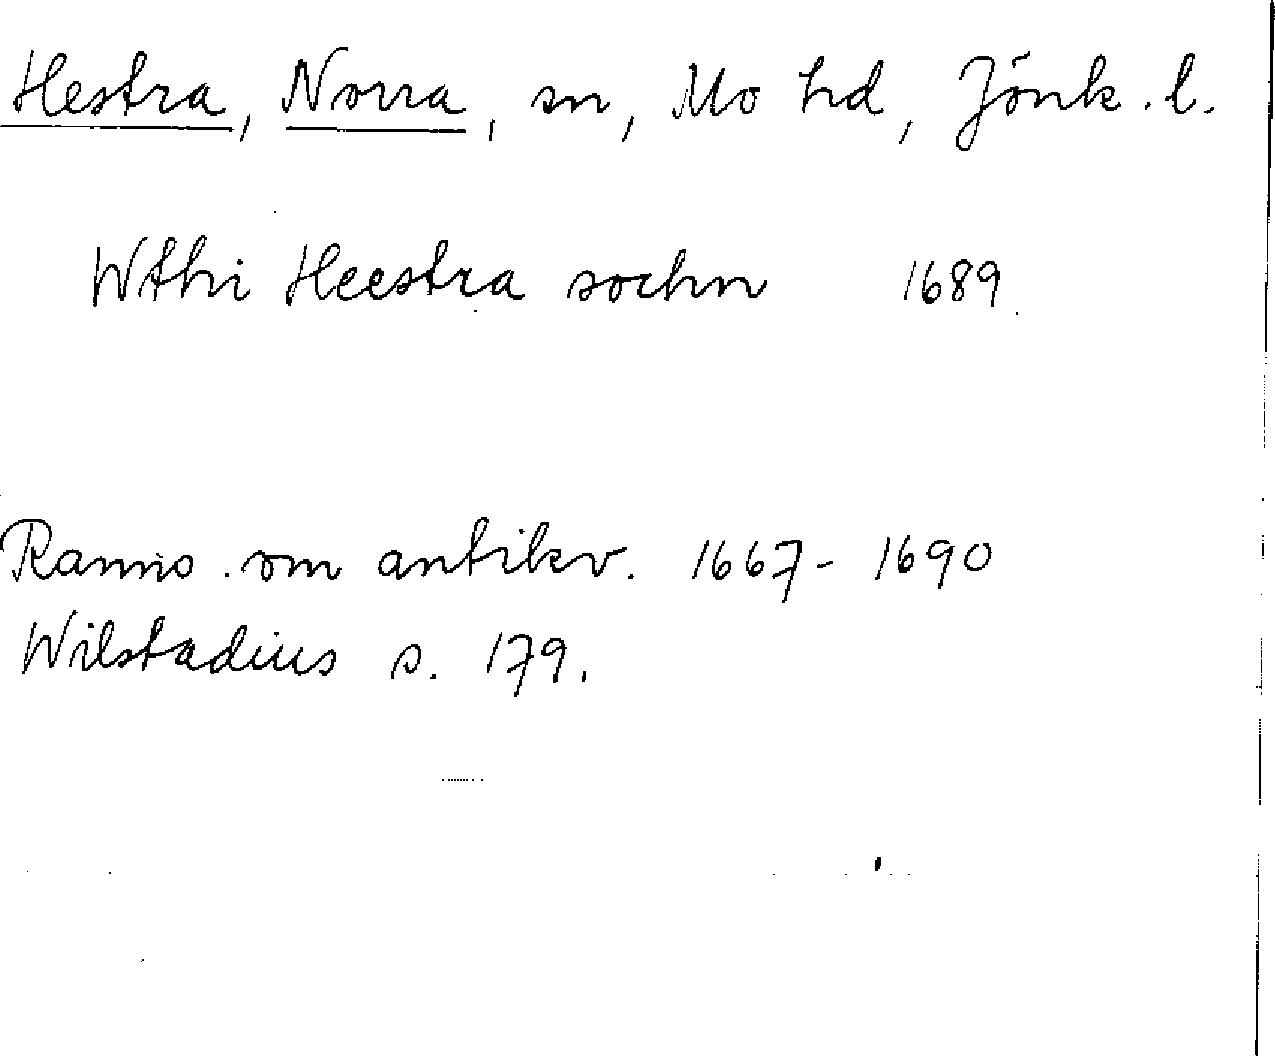 Hestra, Norra, sn, Mo hd, Jönk. l.
Wthi Heestra sochn 1689
Ranns. om antikv. 1667-1690
Wilstadius s. 179.